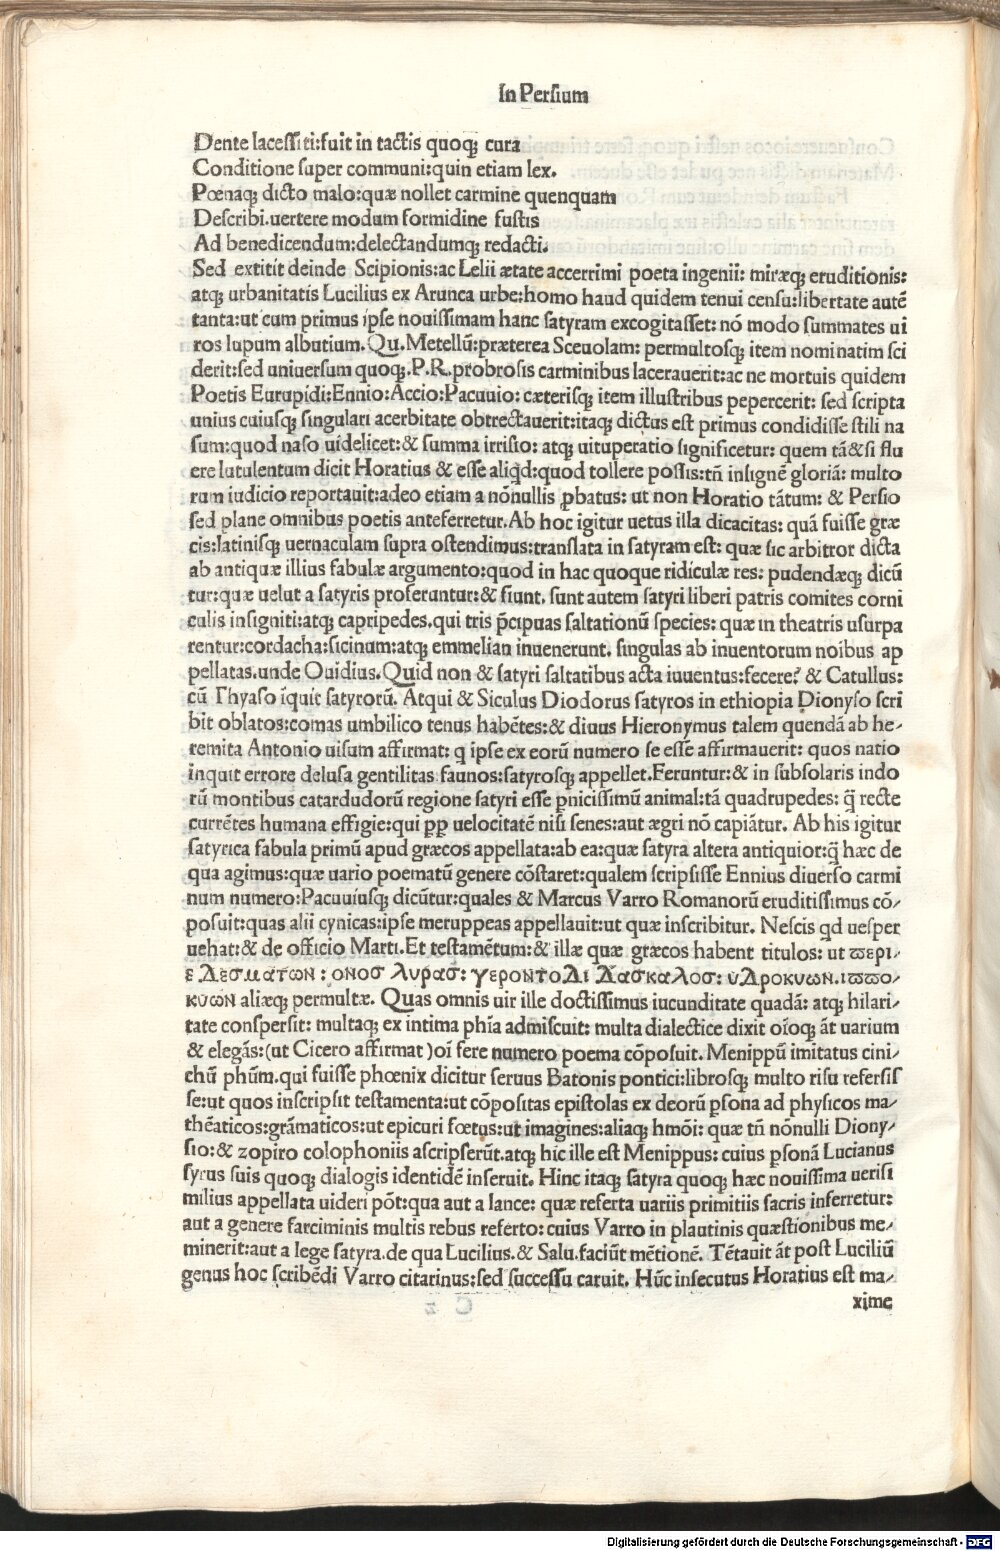 In Persium
Dente lacessiti:fuit in tactis quoqꝫ cura
Conditione super communi:quin etiam lex.
Pœnaqꝫ dicto malo:quæ nollet carmine quenquam
Describi.uertere modum formidine fustis
Ad benedicendum:delectandumqꝫ redacti.
Sed extitit deinde Scipionis:ac Lelii ætate accerrimi poeta ingenii: miræqꝫ eruditionis:
atqꝫ urbanitatis Lucilius ex Arunca urbe:homo haud quidem tenui censu:libertate autē
tanta:ut cum primus ipse nouissimam hanc satyram excogitasset: nō modo summates ui
ros lupum albutium. Qu.Metellū:præterea Sceuolam: permultosqꝫ item nominatim sci
derit:sed uniuersum quoqꝫ.P.R.probrosis carminibus lacerauerit:ac ne mortuis quidem
Poetis Eurupidi:Ennio:Accio:Pacuuio: cæterisqꝫ item illustribus pepercerit: sed scripta
unius cuiusqꝫ singulari acerbitate obtrectauerit:itaqꝫ dictus est primus condidisse stili na
sum:quod naso uidelicet:& summa irrisio: atqꝫ uituperatio significetur: quem tā&si flu
ere lutulentum dicit Horatius & esse aliqd:quod tollere possis:tn̄ insignē gloriā: multo
rum iudicio reportauit:adeo etiam a nōnullis ꝓbatus: ut non Horatio tātum: & Persio
sed plane omnibus poetis anteferretur.Ab hoc igitur uetus illa dicacitas: quā fuisse græ
cis:latinisqꝫ uernaculam supra ostendimus:translata in satyram est: quæ sic arbitror dicta
ab antiquæ illius fabulæ argumento:quod in hac quoque ridiculæ res: pudendæqꝫ dicū
tur:quæ uelut a satyris proferuntur:& fiunt. sunt autem satyri liberi patris comites corni
culis insigniti:atqꝫ capripedes.qui tris p̄cipuas saltationū species: quæ in theatris usurpa
rentur:cordacha:sicinum:atqꝫ emmelian inuenerunt. singulas ab inuentorum noibus ap
pellatas.unde Ouidius.Quid non & satyri saltatibus acta iuuentus:fecere? & Catullus:
cū Thyaso īquit satyrorū. Atqui & Siculus Diodorus satyros in ethiopia Dionyso scri
bit oblatos:comas umbilico tenus habētes:& diuus Hieronymus talem quendā ab he-
remita Antonio uisum affirmat: q ipse ex eorū numero se esse affirmauerit: quos natio
inquit errore delusa gentilitas faunos:satyrosqꝫ appellet.Feruntur:& in subsolaris indo
rū montibus catardudorū regione satyri esse pnicissimū animal:tā quadrupedes: q̄ recte
currētes humana effigie:qui ꝓp uelocitatē nisi senes:aut ægri nō capiātur. Ab his igitur
satyrica fabula primū apud græcos appellata:ab ea:quæ satyra altera antiquior:q̄ hæc de
qua agimus:quæ uario poematū genere cōstaret:qualem scripsisse Ennius diuerso carmi
num numero:Pacuuiusqꝫ dicūtur:quales & Marcus Varro Romanorū eruditissimus cō-
posuit:quas alii cynicas:ipse meruppeas appellauit:ut quæ inscribitur. Nescis qd uesper
uehat:& de officio Marti.Et testamētum:& illæ quæ græcos habent titulos: ut ϖερι-
ε Δεσματων : ονοσ λυρασ: γεροντοΔι Δασκαλοσ: υΔροκυων.ιϖϖο-
κυων aliæqꝫ permultæ. Quas omnis uir ille doctissimus iucunditate quadā: atqꝫ hilari-
tate conspersit: multaqꝫ ex intima phīa admiscuit: multa dialectice dixit oīoqꝫ āt uarium
& elegās:(ut Cicero affirmat)oī fere numero poema cōposuit. Menippū imitatus cini-
chū phūm.qui fuisse phœnix dicitur seruus Batonis pontici:librosqꝫ multo risu refersis
se:ut quos inscripsit testamenta:ut cōpositas epistolas ex deorū psona ad physicos ma-
thēaticos:grāmaticos:ut epicuri fœtus:ut imagines:aliaqꝫ hmōi: quæ tn̄ nōnulli Diony-
sio:& zopiro colophoniis ascripserūt.atqꝫ hic ille est Menippus: cuius psonā Lucianus
syrus suis quoqꝫ dialogis identidē inseruit. Hinc itaqꝫ satyra quoqꝫ hæc nouissima uerisi
milius appellata uideri pōt:qua aut a lance: quæ referta uariis primitiis sacris inferretur:
aut a genere farciminis multis rebus referto: cuius Varro in plautinis quæstionibus me-
minerit:aut a lege satyra.de qua Lucilius.& Salu.faciūt mētionē. Tētauit āt post Luciliū
genus hoc scribēdi Varro citarinus:sed successu caruit. Hūc insecutus Horatius est ma-
xime
Digitalisierung gefördert durch die Deutsche Forschungsgemeinschaft - DFG